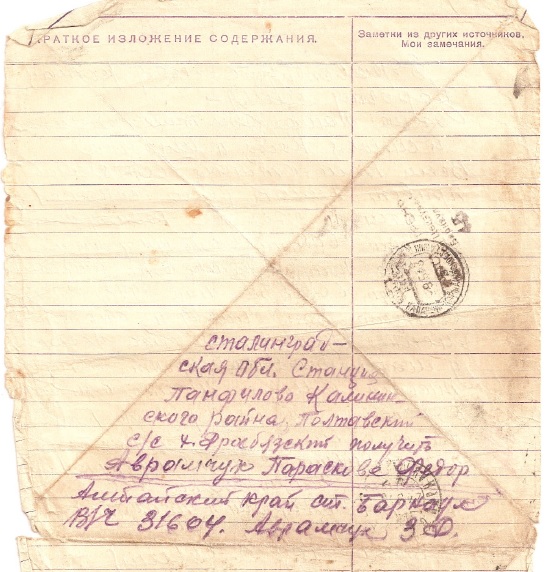 КРАТКОЕ ИЗЛОЖЕНИЕ СОДЕРЖАНИЯ.
Заметки из других источников.
Мои замечания.
сталинград-
ская обл. Станция
Панфилово Калинин
ского района, Полтавский
с/с х. получить
Аврамчук Парасковье Федор
Алтайский край ст. Барнаул
В/Ч 31604. Аврамчук З Ф.